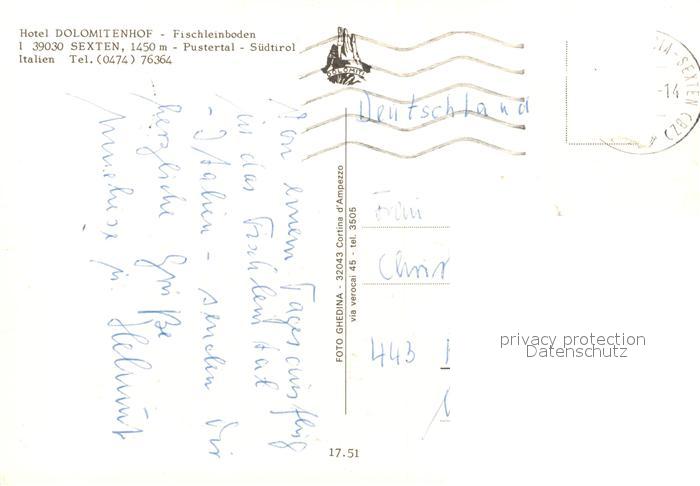 Hotel DOLOMITENHOF - Fischleinboden
I 39030 SEXTEN, 1450 m - Pustertal - Südtirol
Italien Tel. (0474) 76364
DOLOMITI
Von einem Tagesausflug
in das Fischleintal
- Italien - senden Dir
herzliche Grüße
Helmut
FOTO GHEDINA - 32043 Cortina d'Ampezzo
via verocai 45 - tel. 3505
17.51
-SEXTEN (BZ)
-14
Deutschland
Frau
Christ
443
privacy protection
Datenschutz